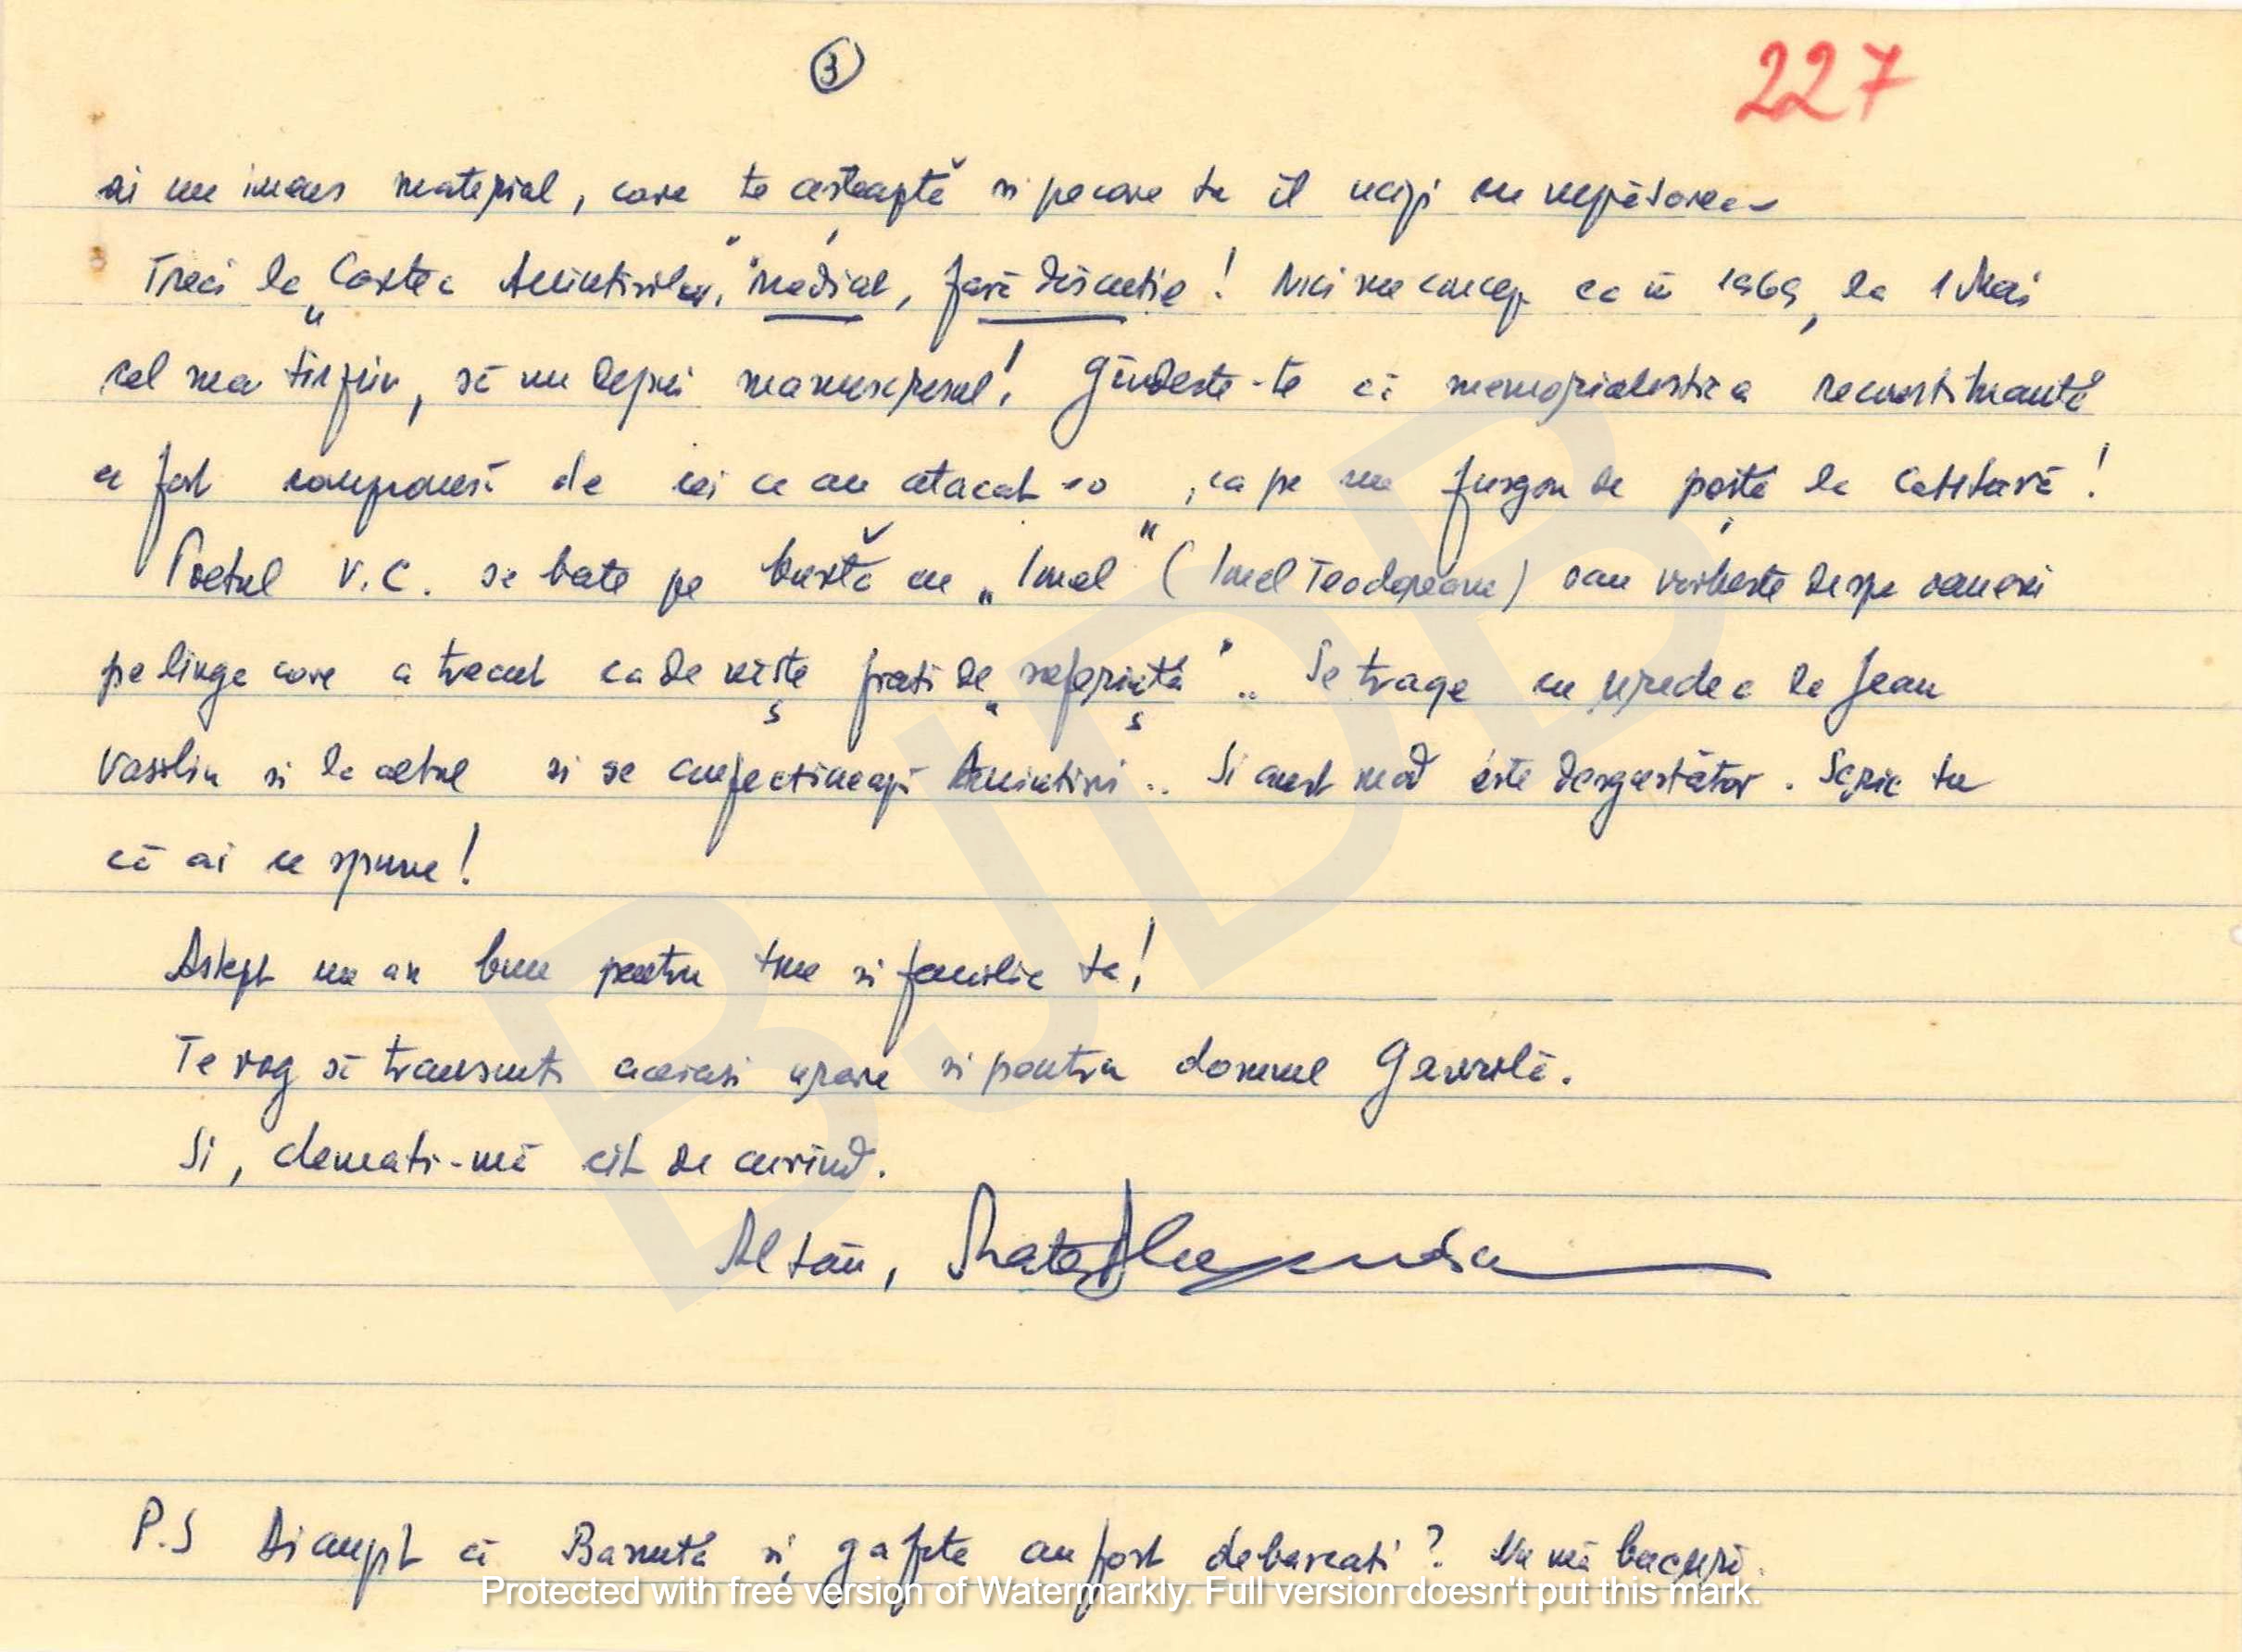 3
227
ai un imens material, care te asteaptă si pe care tu îl ucizi cu nepăsarea
Treci la „Cartea Amintirilor", "radical, fără discutie! Nici nu concep ca în 1969, la 1 Mai
cel mai tîrziu, să nu depui manuscrisul! Gîndeste-te că memorialistica
a fost compusă de cei ce au atacat-o, ca pe un furgon de postă la Calatavă!
Poetul V.C. se bate pe burtă cu „Ionel" (Ionel Teodoreanu) sau vorbeste despre oameni
pe lînge care a trecut ca de niste frati de „suferintă". Se trage cu urechea la Jean
si la altul si se confectionează Amintiri.. Si acest mod este desgustător. Scrie tu
că ai ce spune!
Astept un an bun pentru tine si familia ta!
Te rog să transmiti aceiasi urare si pentru domnul Gavrilă.
Si, chemati-mă cît de curînd.
Al tău, Mateiu Alexandrescu
P.S Ai aflat că si gasca au fost debarcati? Nu mă bucură.
BJDB
Protected with free version of Watermarkly. Full version doesn't put this mark.